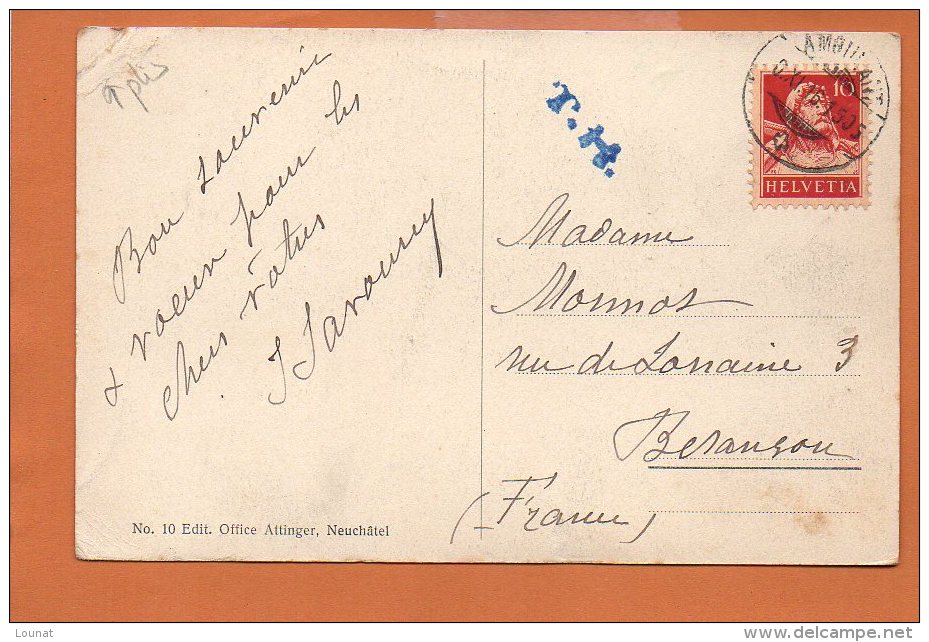 plis
Bon souvenir
& voeux pour les
chers vôtres
J Savoury
No. 10 Edit. Office Attinger, Neuchâtel
T.H.
AMBULANT
10
HELVETIA
Madame
Monnot
rue de Lorraine 3
Besançon
(France)
Lounat
www.delcampe.net